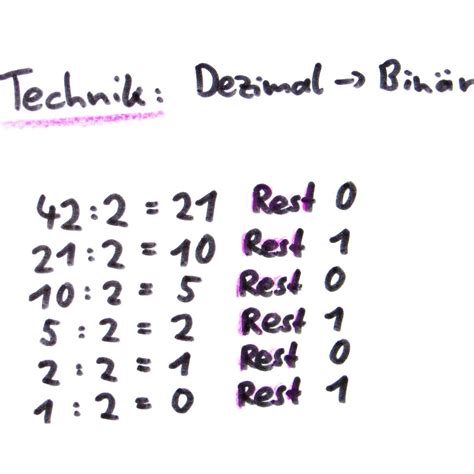 Technik: Dezimal → Binär
42:2 = 21 Rest 0
21:2 = 10 Rest 1
10:2 = 5 Rest 0
5:2 = 2 Rest 1
2:2 = 1 Rest 0
1:2 = 0 Rest 1